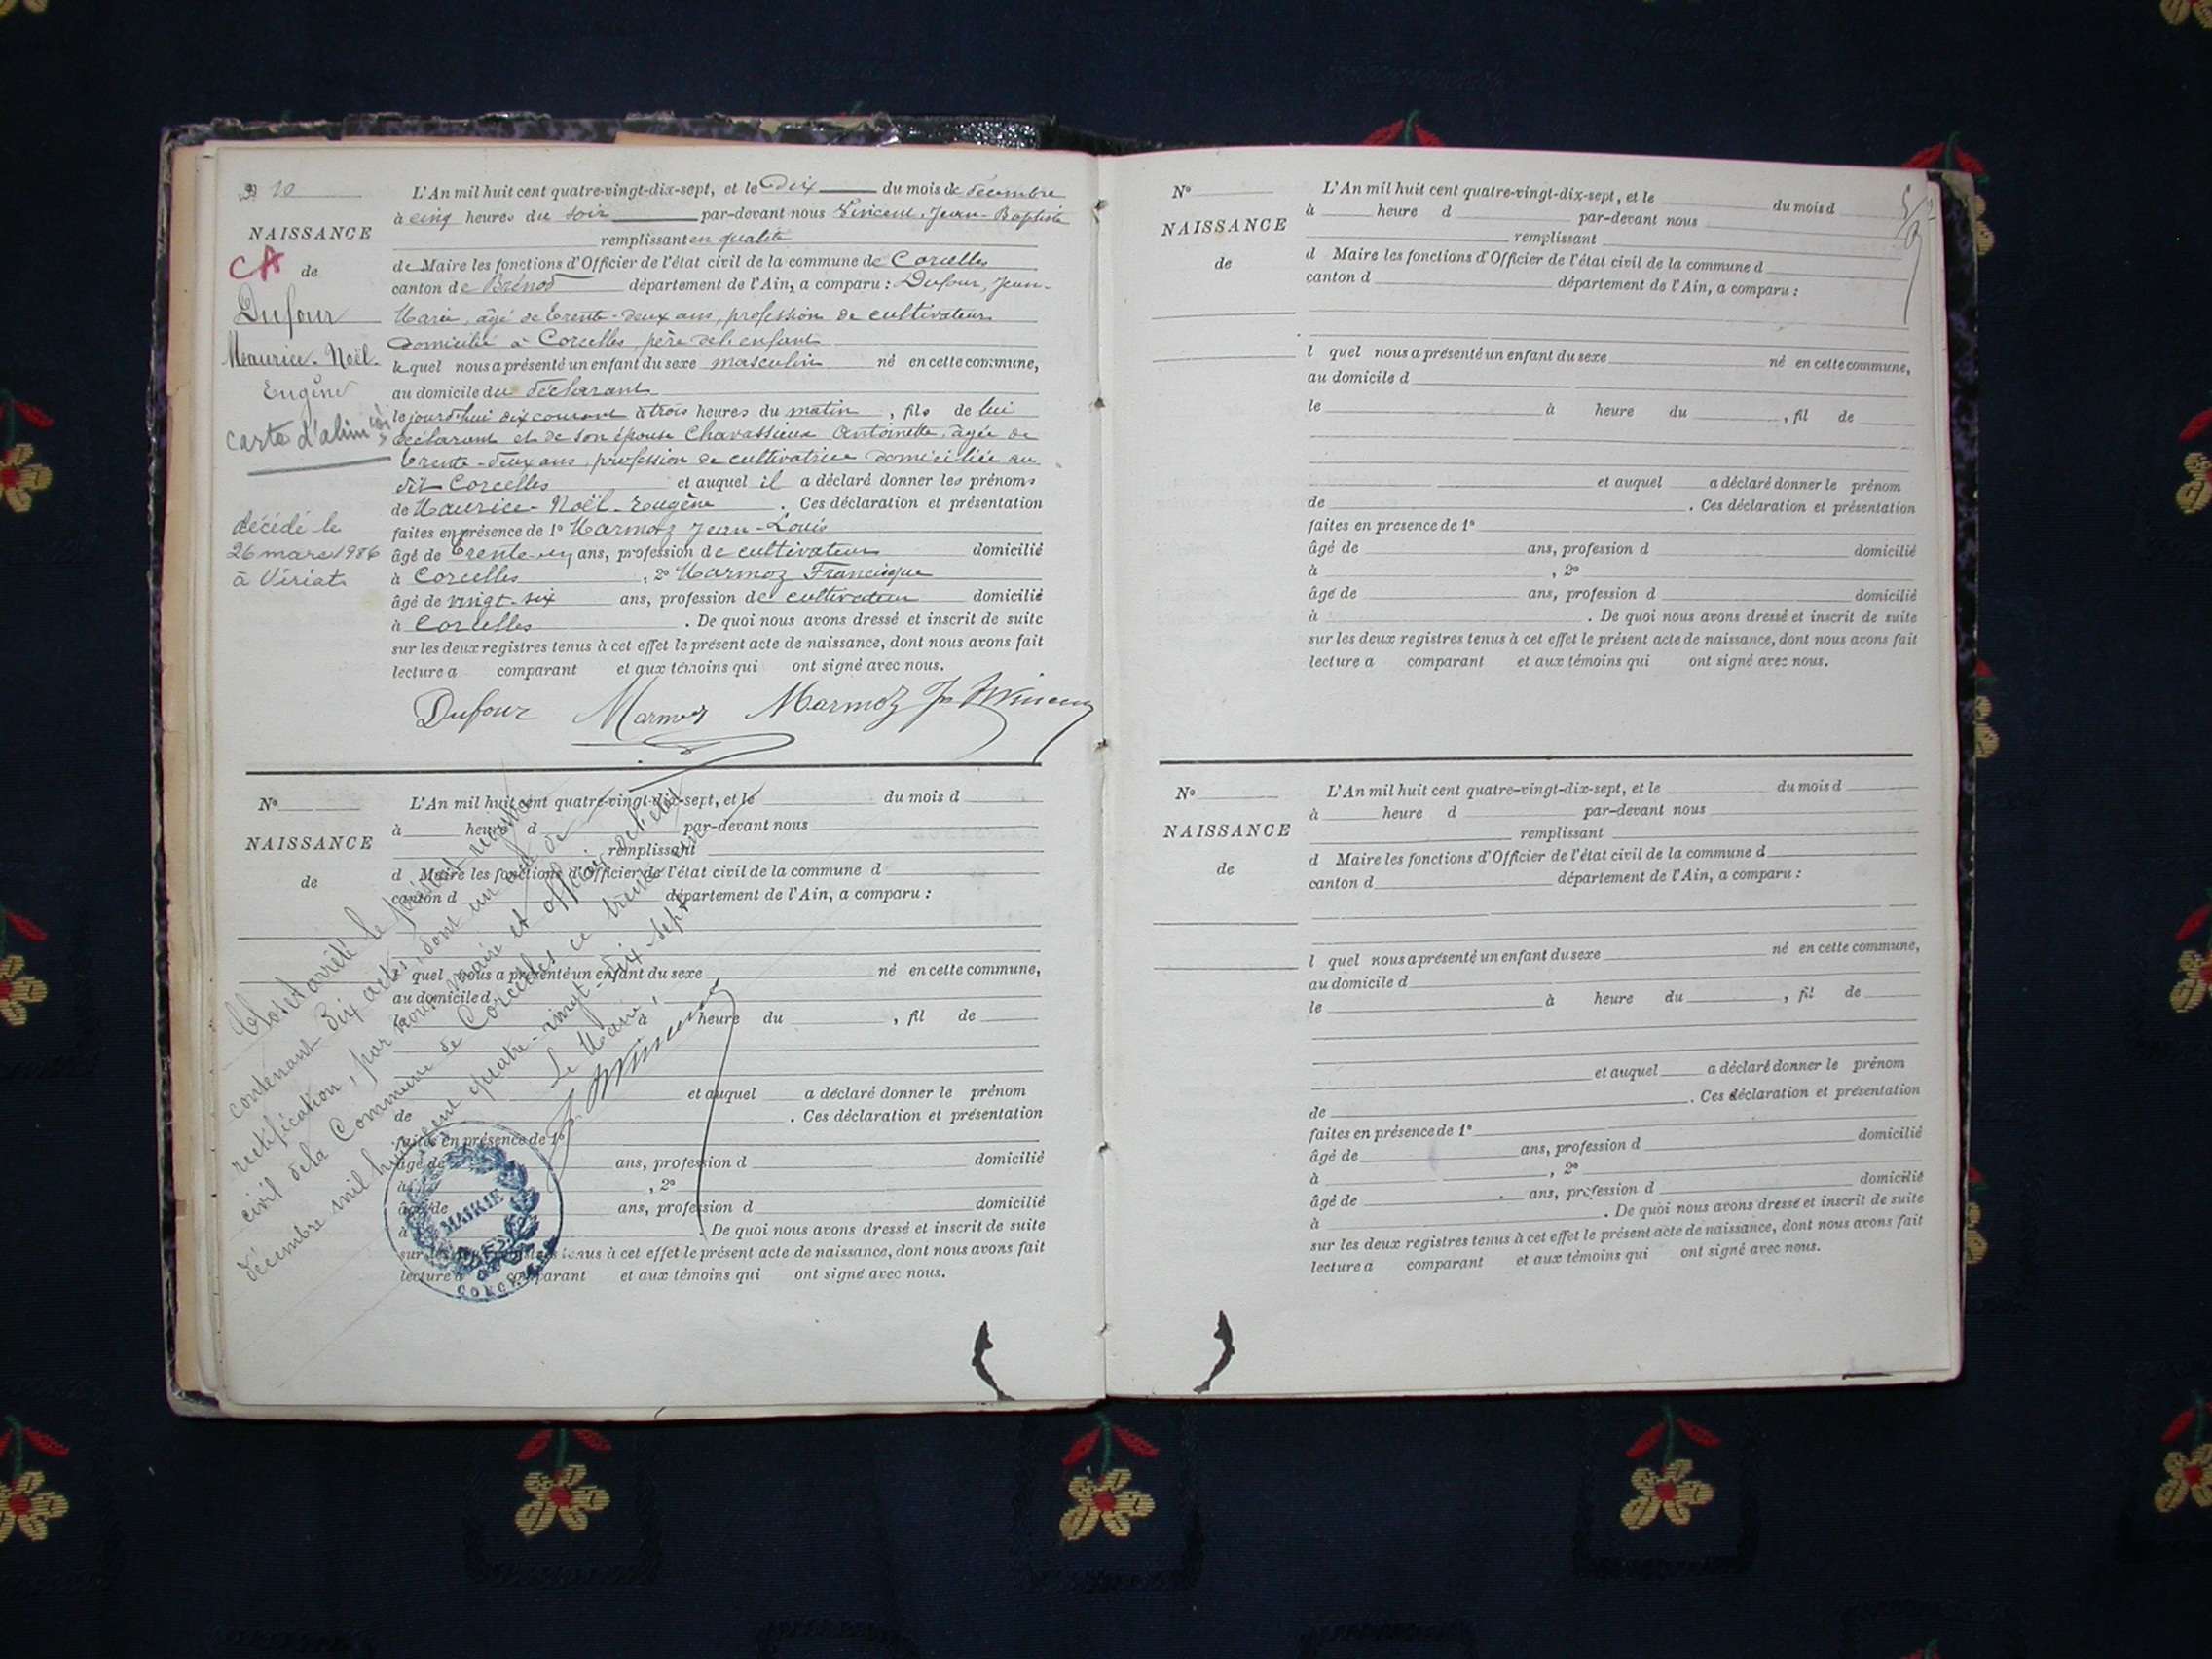 Nº 10
NAISSANCE
CA
de
Dufour
Maurice-Noël-
Eugène
carte d'alim
décédé le
26 mars 1986
à Viriat
L'An mil huit cent quatre-vingt-dix-sept, et le Dix du mois de décembre
à cinq heures du soir par-devant nous Vincent, Jean-Baptiste
remplissant en qualité
de Maire les fonctions d'Officier de l'état civil de la commune de Corcelles
canton de Brénod département de l'Ain, a comparu : Dufour, Jean-
Marie, âgé de trente-deux ans, profession de cultivateur
domicilié à Corcelles, père de l'enfant
lequel nous a présenté un enfant du sexe masculin né en cette commune,
au domicile du déclarant
le jourd'hui dix courant à trois heures du matin, fils de lui
déclarant et de son épouse Chavassieux Antoinette, âgée de
trente-deux ans, profession de cultivatrice domiciliée au
dit Corcelles et auquel il a déclaré donner les prénoms
de Maurice-Noël-Eugène. Ces déclaration et présentation
faites en présence de 1º Marmoz Jean-Louis
âgé de trente-un ans, profession de cultivateur domicilié
à Corcelles, 2º Marmoz Francisque
âgé de vingt-six ans, profession de cultivateur domicilié
à Corcelles. De quoi nous avons dressé et inscrit de suite
sur les deux registres tenus à cet effet le présent acte de naissance, dont nous avons fait
lecture a comparant et aux témoins qui ont signé avec nous.
Dufour Marmoz Marmoz Jn Bte Vincent
Nº
NAISSANCE
de
L'An mil huit cent quatre-vingt-dix-sept, et le du mois d
à heure d par-devant nous
remplissant
d Maire les fonctions d'Officier de l'état civil de la commune d
canton d département de l'Ain, a comparu :
l quel nous a présenté un enfant du sexe né en cette commune,
au domicile d
le à heure du , fil de
et auquel a déclaré donner le prénom
de . Ces déclaration et présentation
faites en présence de 1º
âgé de ans, profession d domicilié
à , 2º
âgé de ans, profession d domicilié
à . De quoi nous avons dressé et inscrit de suite
sur les deux registres tenus à cet effet le présent acte de naissance, dont nous avons fait
lecture a comparant et aux témoins qui ont signé avec nous.
Clos et arrêté le présent registre
contenant dix actes, dont un acte de
rectification, par nous maire et officier de l'état
civil de la Commune de Corcelles ce trente
décembre mil huit cent quatre-vingt-dix-sept
Le Maire,
J. B. Vincent
MAIRIE
Nº
NAISSANCE
de
L'An mil huit cent quatre-vingt-dix-sept, et le du mois d
à heure d par-devant nous
remplissant
d Maire les fonctions d'Officier de l'état civil de la commune d
canton d département de l'Ain, a comparu :
l quel nous a présenté un enfant du sexe né en cette commune,
au domicile d
le à heure du , fil de
et auquel a déclaré donner le prénom
de . Ces déclaration et présentation
faites en présence de 1º
âgé de ans, profession d domicilié
à , 2º
âgé de ans, profession d domicilié
à . De quoi nous avons dressé et inscrit de suite
sur les deux registres tenus à cet effet le présent acte de naissance, dont nous avons fait
lecture a comparant et aux témoins qui ont signé avec nous.
Nº
NAISSANCE
de
L'An mil huit cent quatre-vingt-dix-sept, et le du mois d
à heure d par-devant nous
remplissant
d Maire les fonctions d'Officier de l'état civil de la commune d
canton d département de l'Ain, a comparu :
l quel nous a présenté un enfant du sexe né en cette commune,
au domicile d
le à heure du , fil de
et auquel a déclaré donner le prénom
de . Ces déclaration et présentation
faites en présence de 1º
âgé de ans, profession d domicilié
à , 2º
âgé de ans, profession d domicilié
à . De quoi nous avons dressé et inscrit de suite
sur les deux registres tenus à cet effet le présent acte de naissance, dont nous avons fait
lecture a comparant et aux témoins qui ont signé avec nous.